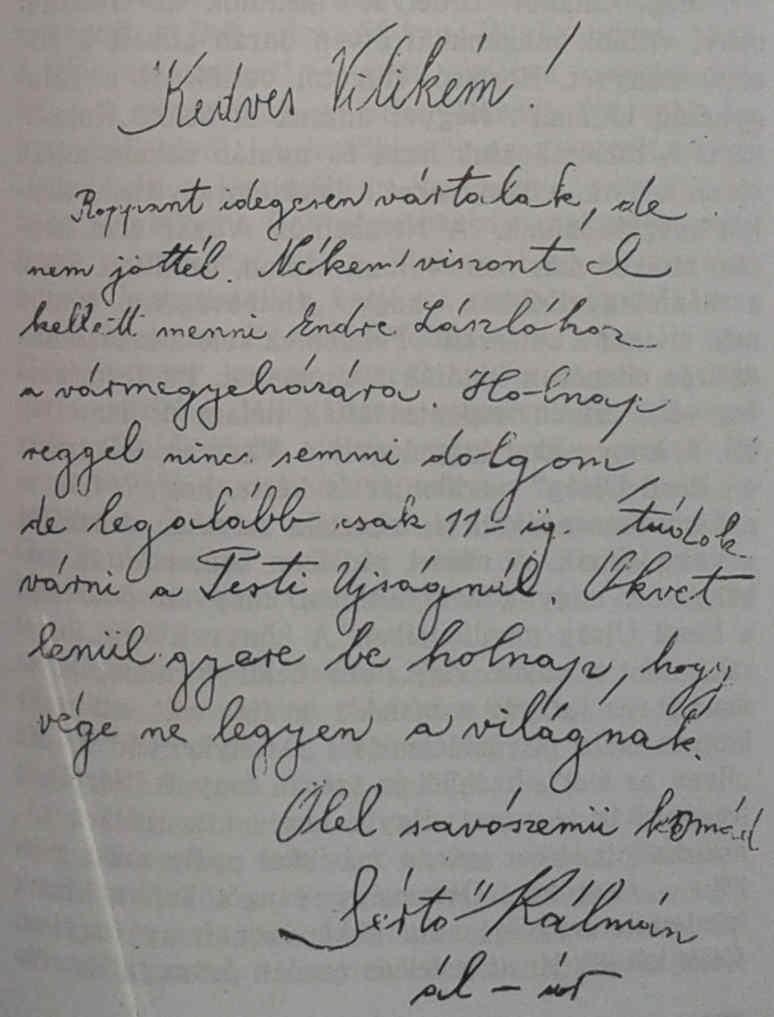 Kedves Vilikém!
Roppant idegesen vártalak, de
nem jöttél. Nékem viszont el
kellett menni Endre Lászlóhoz
a vármegyeházára. Holnap
reggel nincs semmi dolgom,
de legalább csak 11-ig. tudok
várni a Pesti Ujságnál. Okvet
lenül gyere be holnap, hogy
vége ne legyen a világnak.
Ölel savószemü komád
Sértő Kálmán
ál-úr